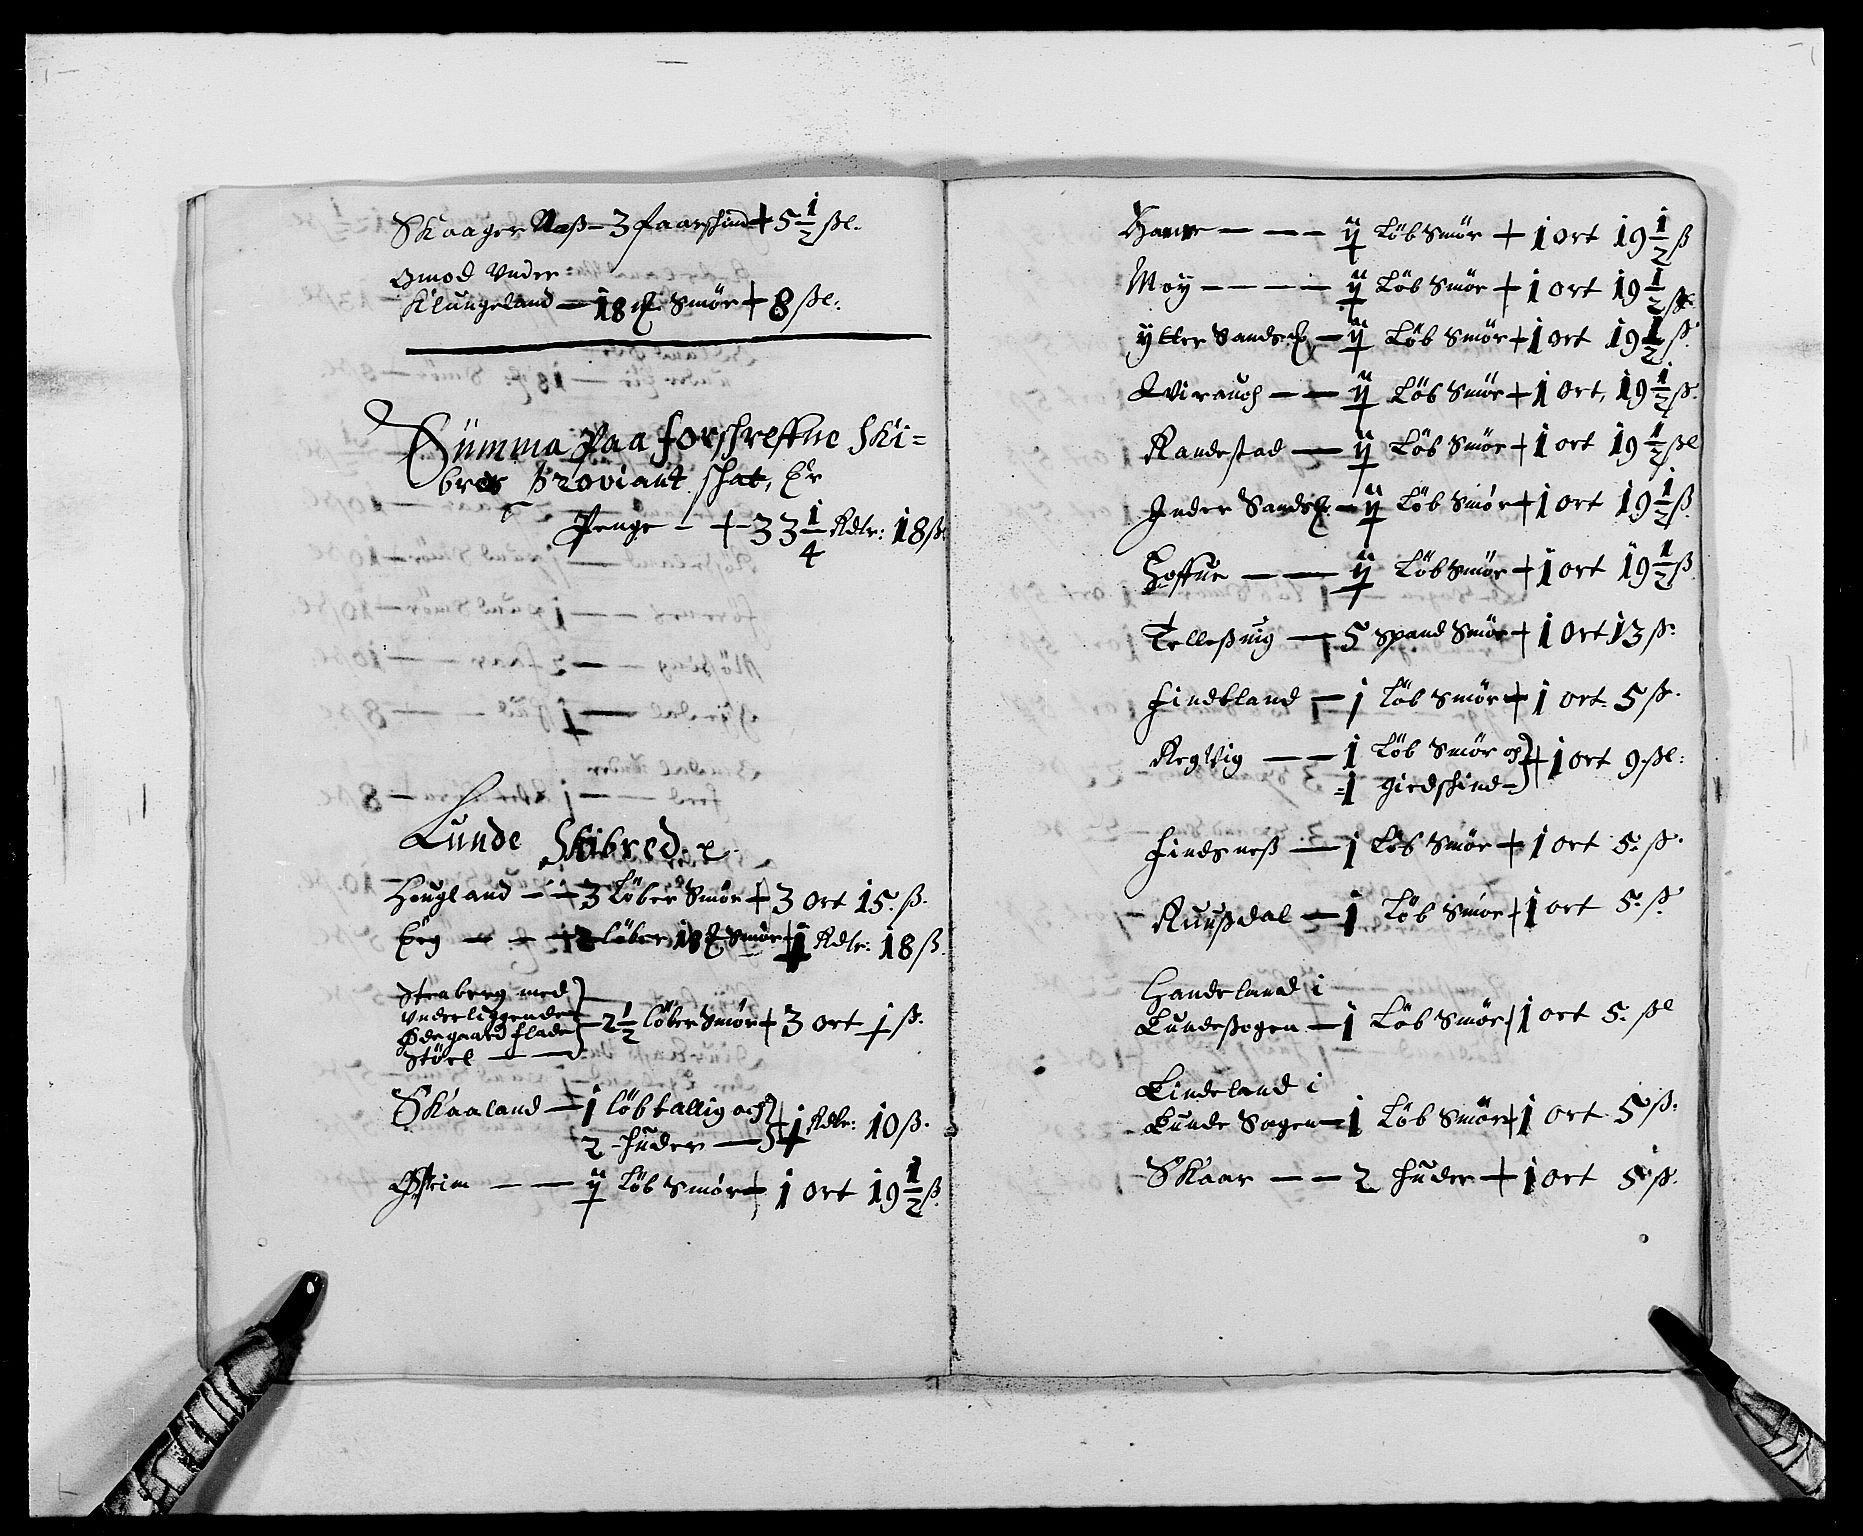 Skaager Næß – 3 faarschind + 5 1/2 ßl.
Omod Vnder
Klungeland – 18 Smör + 8 ßl.
Summa Paa forschreffne Ski=
bres Proviant schat, Er
Penge – + 33 1/4 Rdlr: 18 ß
Lunde Skibrede
Hougland – – 3 Löber Smör + 3 Ort 15 ß.
Eeg – – – 2 löber, 18 Smör + 1 Rdlr: 18 ß.
Steaberg med
Vnderliggende
Ødegaard flade
Störl – – – 2 1/2 löber Smör + 3 ort j ß.
Skaaland – 1 löb tallig och
2 huder – + 1 Rdlr: 10 ß.
– – ij Löb Smör + 1 ort 19 1/2 ß.
– – – ij Löb Smör + 1 ort 19 1/2 ß
Moy – – – – ij Löb Smör + 1 ort 19 1/2 ßl
ytter – ij Löb Smör + 1 ort 19 1/2 ß.
– – ij Löb Smör + 1 ort, 19 1/2 ß.
Randestad – ij Löb Smör + 1 ort 19 1/2 ßl
Inder – ij Löb Smör + 1 ort 19 1/2 ß.
Hoffue – – ij Löb Smör + 1 ort 19 1/2 ß
Telleßuig – 5 Spand Smör + 1 Ort 13 ß.
– j löb Smör + 1 ort 5 ß.
Regevig – – 1 Löb Smör och
1 giedschind – + 1 ort 9 ßl:
Findsneß – 1 Löb Smör + 1 ort 5 ß.
Ruußdal – 1 Löb Smör + 1 ort 5 ß.
Handeland i
Lundeßogen – 1 Löb Smör + 1 ort 5 ßl
Lindeland i
Lunde Sogen – 1 Löb Smör + 1 ort 5 ß.
Skaar – – 2 huder + 1 ort 5 ß.